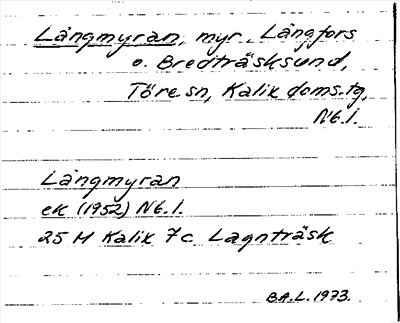 Långmyran, myr, Långfors
o. Bredträsksund,
Töre sn, Kalix doms.tg,
Nb.l.
Långmyran
ek (1952) Nb.l.
25 M Kalix 7c Lagnträsk
B.A.L. 1973.